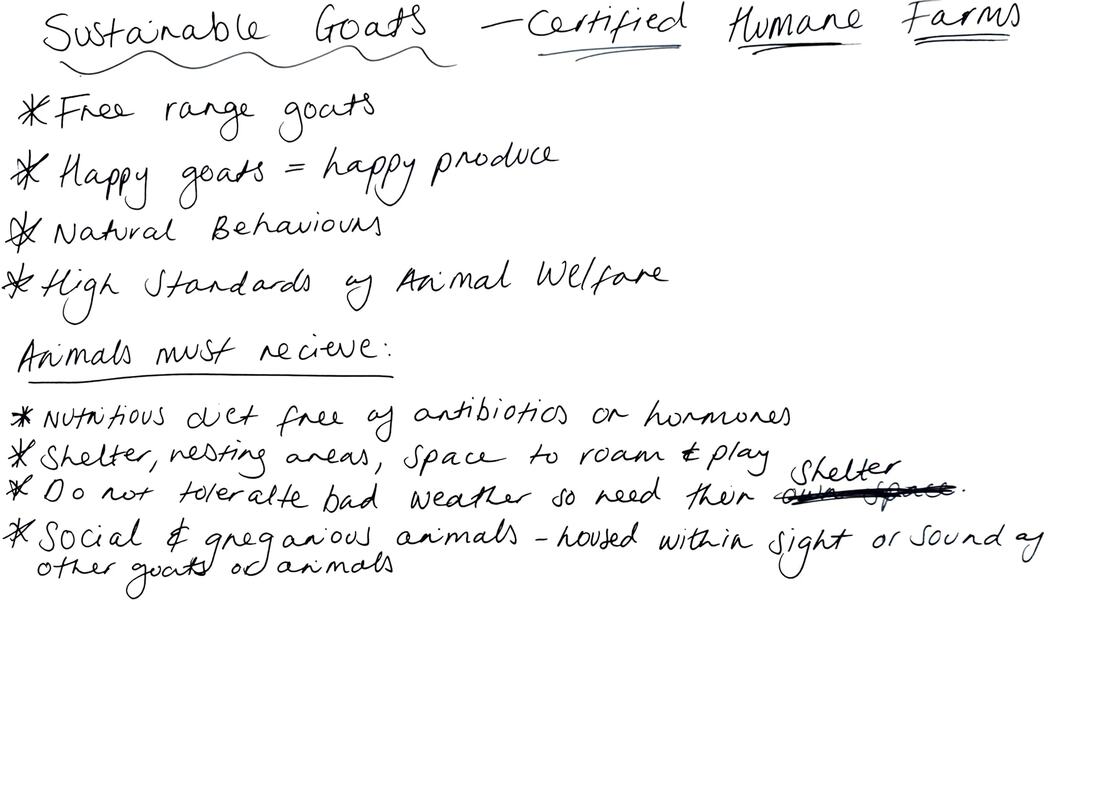 Sustainable Goats - Certified Humane Farms
* Free range goats
* Happy goats = happy produce
* Natural Behaviours
* High Standards of Animal Welfare
Animals must recieve:
* Nutritious diet free of antibiotics or hormones
* Shelter, nesting areas, space to roam & play
* Do not toleralte bad weather so need their shelter own space.
* Social & gregarious animals - housed within sight or sound of
other goats or animals